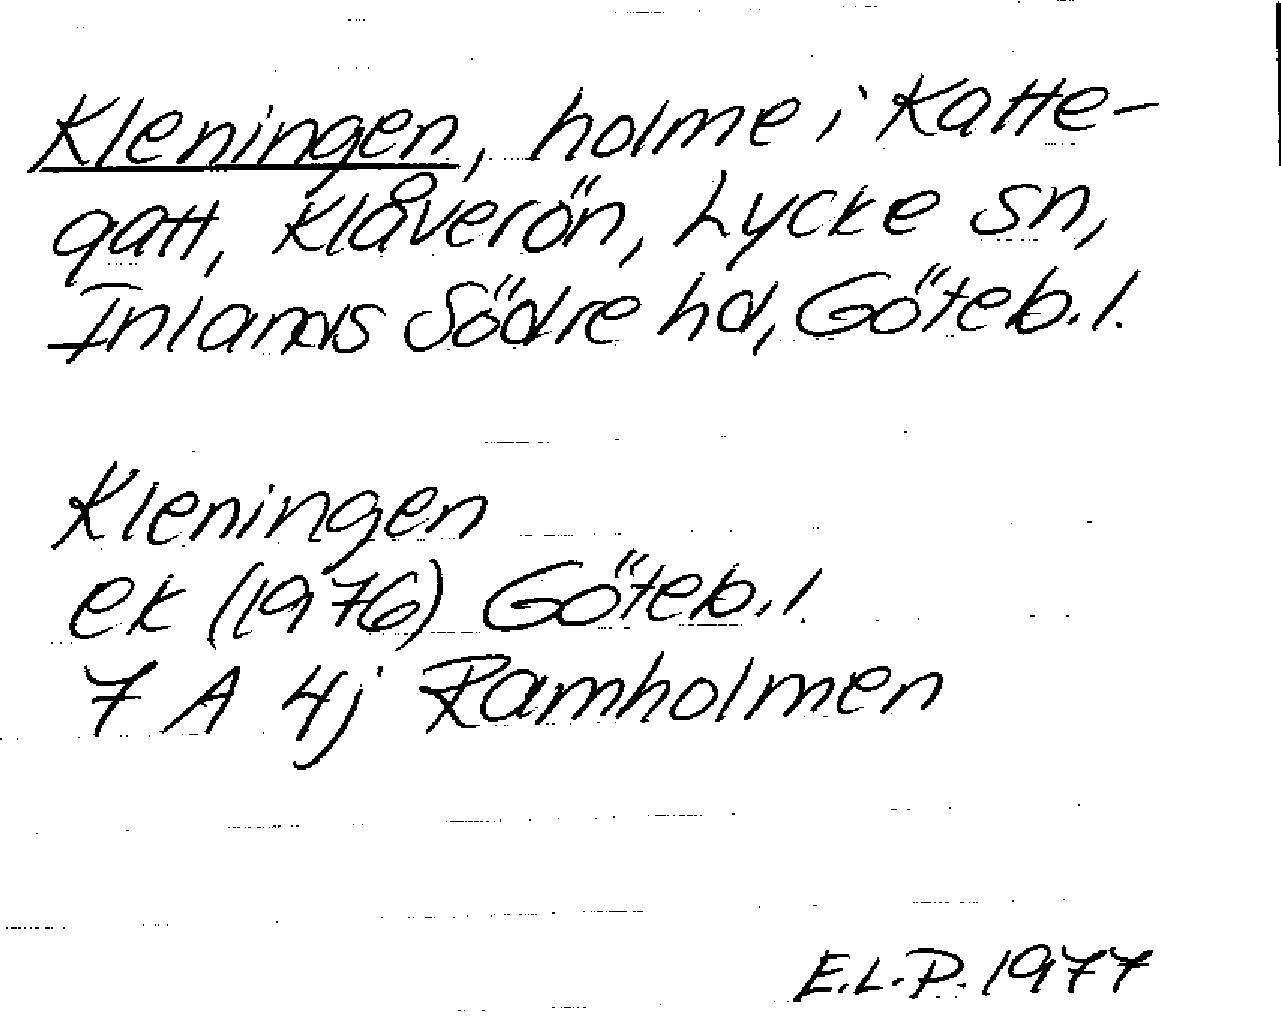 Kleningen, holme i Katte-
gatt, Klåverön, Lycke sn,
Inlands Södre hd, Göteb. l.
Kleningen
ek (1976) Göteb. l.
7 A 4j Ramholmen
E.L.P. 1977